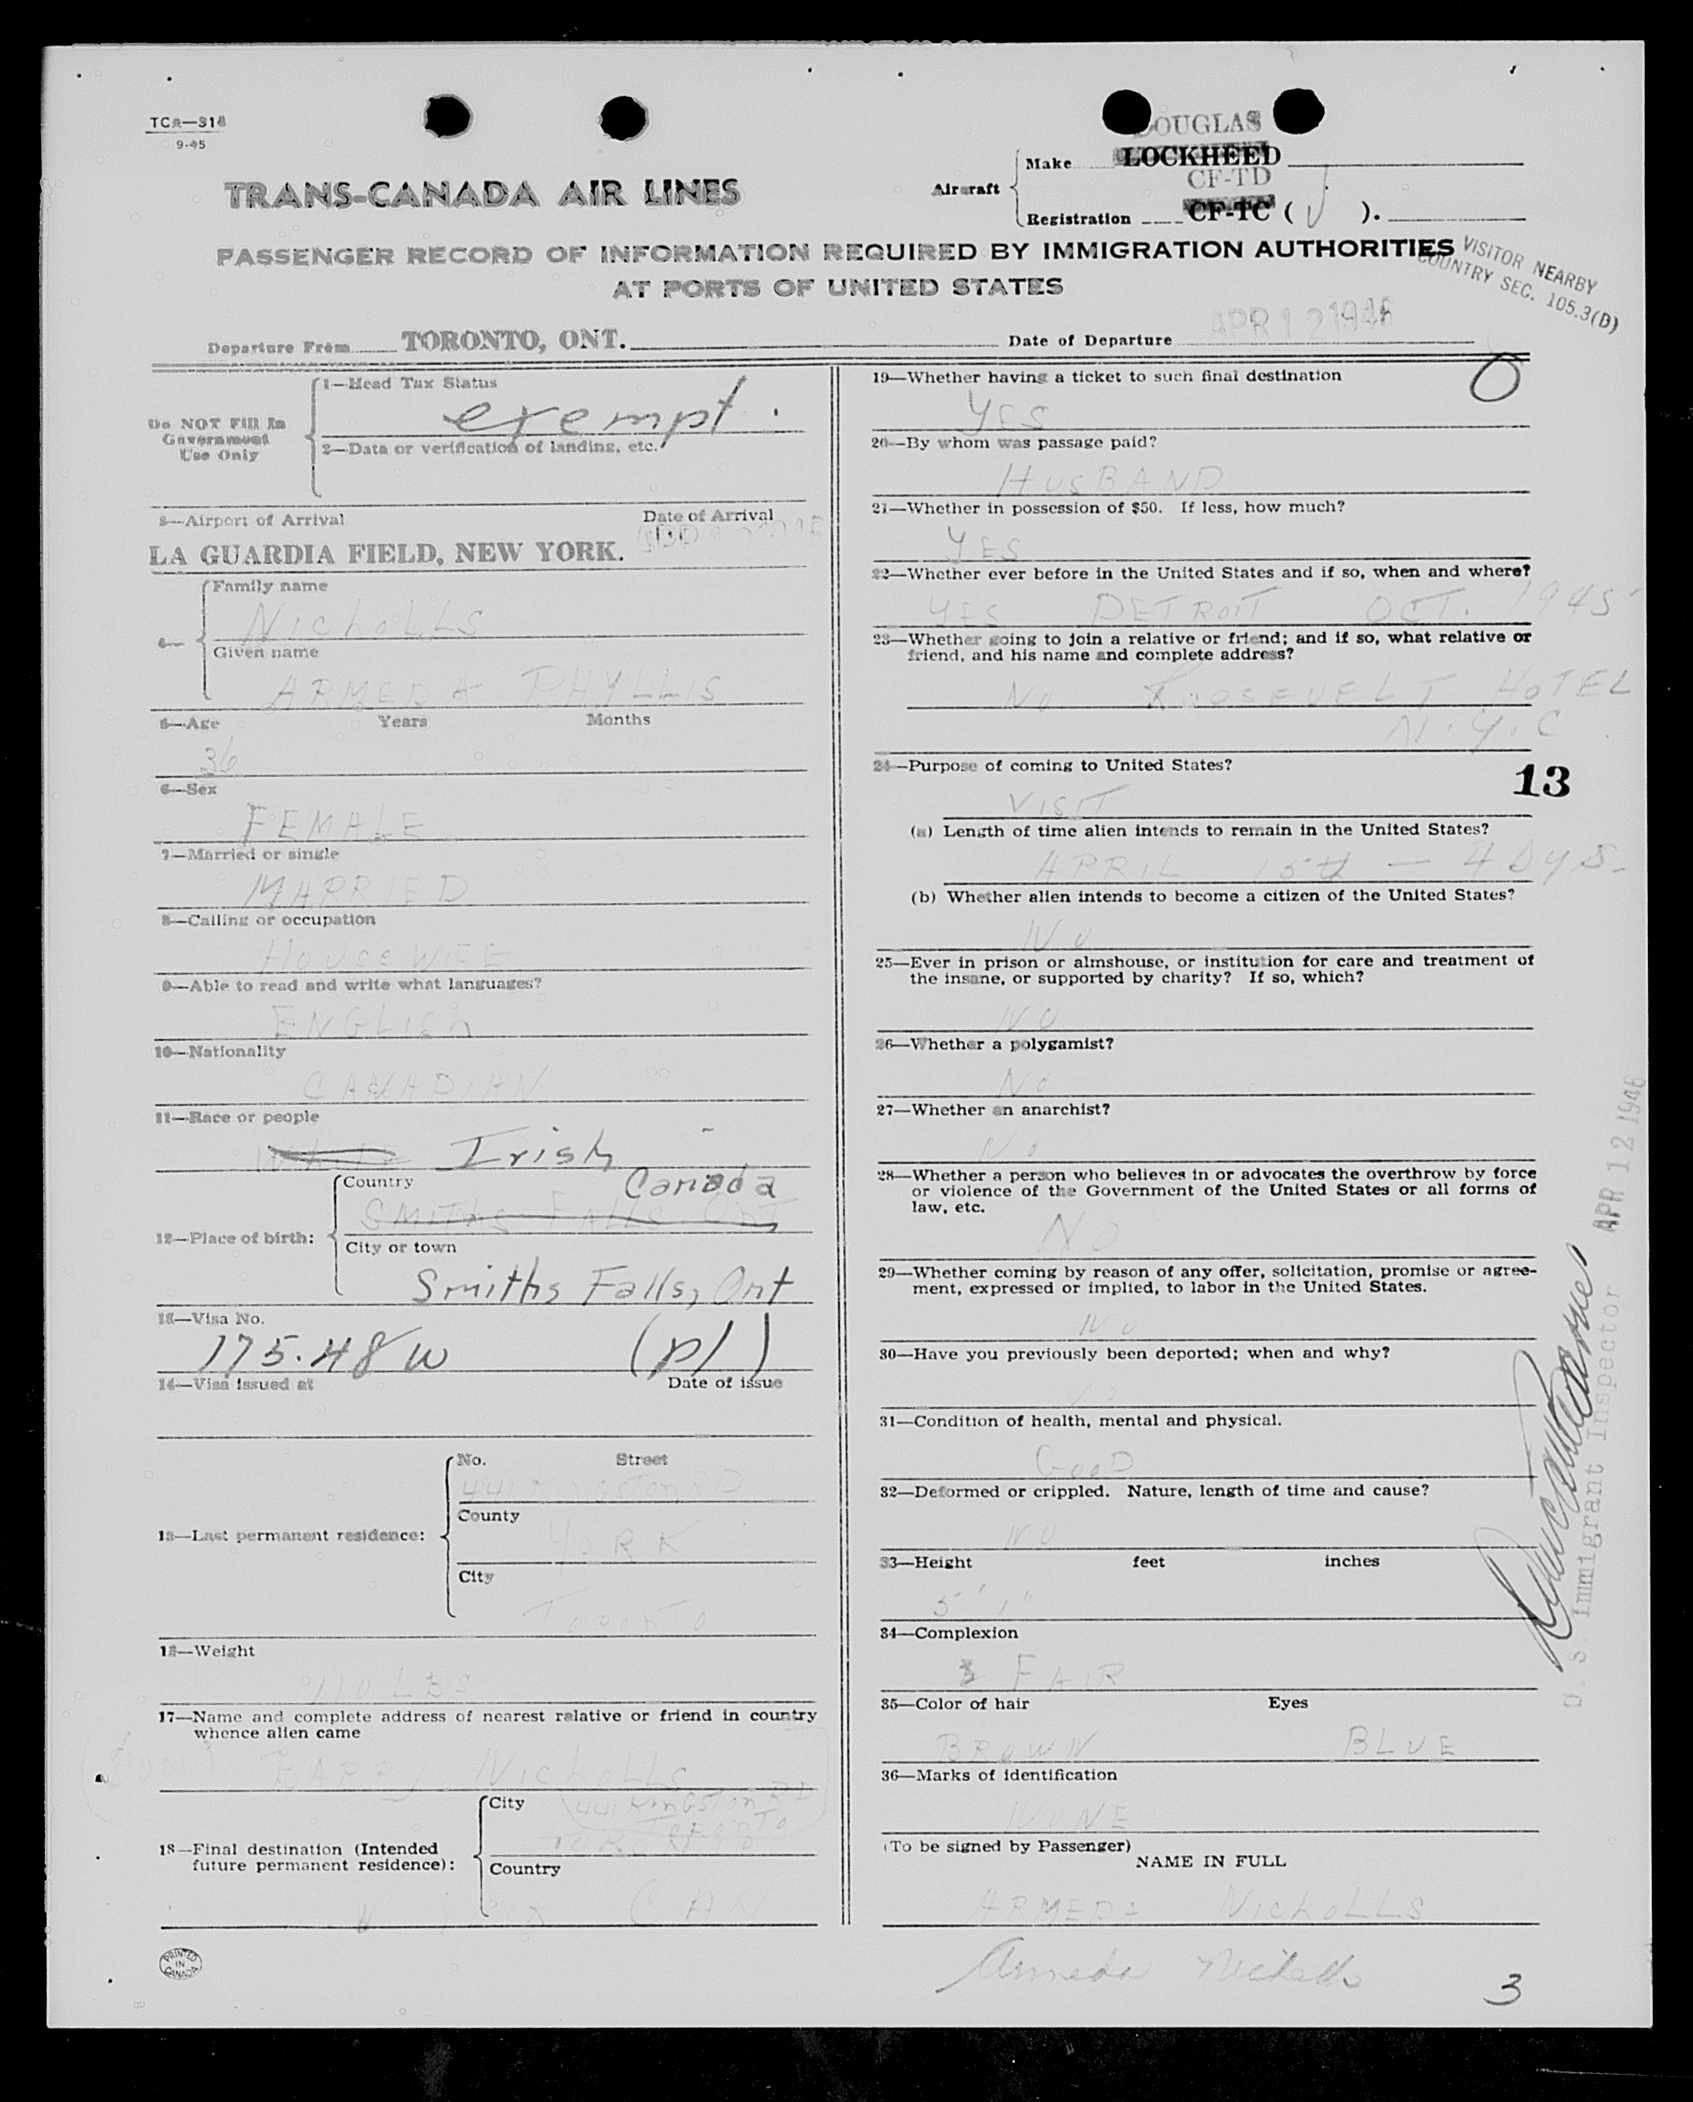 TCA—318
9-45
TRANS-CANADA AIR LINES
Aircraft
Make DOUGLAS
LOCKHEED
CF-TD
Registration CF-TC ( J ).
PASSENGER RECORD OF INFORMATION REQUIRED BY IMMIGRATION AUTHORITIES
AT PORTS OF UNITED STATES
VISITOR NEARBY
COUNTRY SEC. 105.3(D)
Departure From TORONTO, ONT.
Date of Departure APR 12 1946
Do NOT Fill In
Government
Use Only
1—Head Tax Status
exempt.
2—Data or verification of landing, etc.
3—Airport of Arrival Date of Arrival
LA GUARDIA FIELD, NEW YORK.
4—
Family name
NICHOLLS
Given name
ARMEDA PHYLLIS
5—Age Years Months
36
6—Sex
FEMALE
7—Married or single
MARRIED
8—Calling or occupation
HOUSEWIFE
9—Able to read and write what languages?
ENGLISH
10—Nationality
CANADIAN
11—Race or people
White Irish
12—Place of birth:
Country Canada
SMITHS FALLS ONT
City or town
Smiths Falls, Ont
13—Visa No.
175.48w (p1)
14—Visa issued at Date of issue
15—Last permanent residence:
No. Street
441 KINGSTON RD
County
YORK
City
TORONTO
16—Weight
110 LBS
17—Name and complete address of nearest relative or friend in country
whence alien came
NICHOLLS
441 KINGSTON RD
TORONTO
18—Final destination (Intended
future permanent residence):
City
TORONTO
Country
CAN
PRINTED
IN
CANADA
19—Whether having a ticket to such final destination
YES
0
20—By whom was passage paid?
HUSBAND
21—Whether in possession of $50. If less, how much?
YES
22—Whether ever before in the United States and if so, when and where?
YES DETROIT OCT. 1945
23—Whether going to join a relative or friend; and if so, what relative or
friend, and his name and complete address?
NO ROOSEVELT HOTEL
N.Y.C.
24—Purpose of coming to United States?
13
VISIT
(a) Length of time alien intends to remain in the United States?
APRIL 15th — 4 DYS.
(b) Whether alien intends to become a citizen of the United States?
NO
25—Ever in prison or almshouse, or institution for care and treatment of
the insane, or supported by charity? If so, which?
NO
26—Whether a polygamist?
NO
27—Whether an anarchist?
NO
28—Whether a person who believes in or advocates the overthrow by force
or violence of the Government of the United States or all forms of
law, etc.
NO
29—Whether coming by reason of any offer, solicitation, promise or agree-
ment, expressed or implied, to labor in the United States.
NO
30—Have you previously been deported; when and why?
31—Condition of health, mental and physical.
GOOD
32—Deformed or crippled. Nature, length of time and cause?
NO
33—Height feet inches
5' 1"
34—Complexion
FAIR
35—Color of hair Eyes
BROWN BLUE
36—Marks of identification
NONE
(To be signed by Passenger)
NAME IN FULL
ARMEDA NICHOLLS
Armeda Nicholls
3
U. S. Immigrant Inspector APR 12 1946